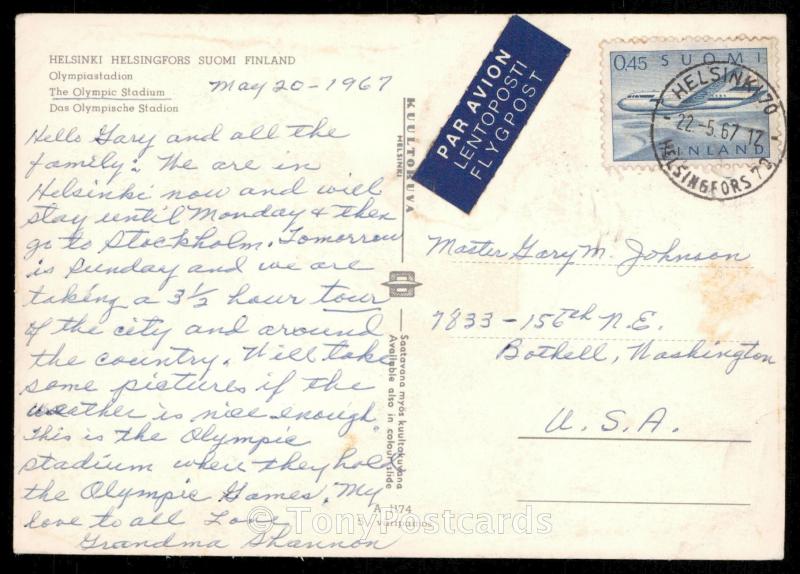 HELSINKI HELSINGFORS SUOMI FINLAND
Olympiastadion
The Olympic Stadium
Das Olympische Stadion
May 20-1967
Hello Gary and all the
family: We are in
Helsinki now and will
stay until Monday & then
go to Stockholm. Tomorrow
is Sunday and we are
taking a 3 1/2 hour tour
of the city and around
the country. Will take
some pictures if the
weather is nice enough.
This is the Olympic
stadium when they hold
the Olympic Games. My
love to all Love
Grandma Shannon
KUULTOKUVA
HELSINKI
Saatavana myös kuultokuvana
Available also in colourslide
A 1174
varipaino
PAR AVION
LENTOPOSTI
FLYGPOST
0,45 SUOMI
FINLAND
HELSINKI 70
22.-5.67 17
HELSINGFORS 70
Master Gary M. Johnson
7833-156th N.E.
Bothell, Washington
U.S.A.
© TonyPostcards